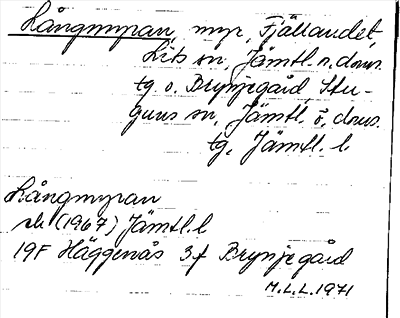 Långmyran, myr, Fjällandet,
Lits sn, Jämtl. n. doms.
tg o. Brynjegård, Stu-
guns sn, Jämtl. ö. doms.
tg, Jämtl. l.
Långmyran
sk (1967) Jämtl. l
19F Häggenås 3f Brynjegård
M.L.L. 1971